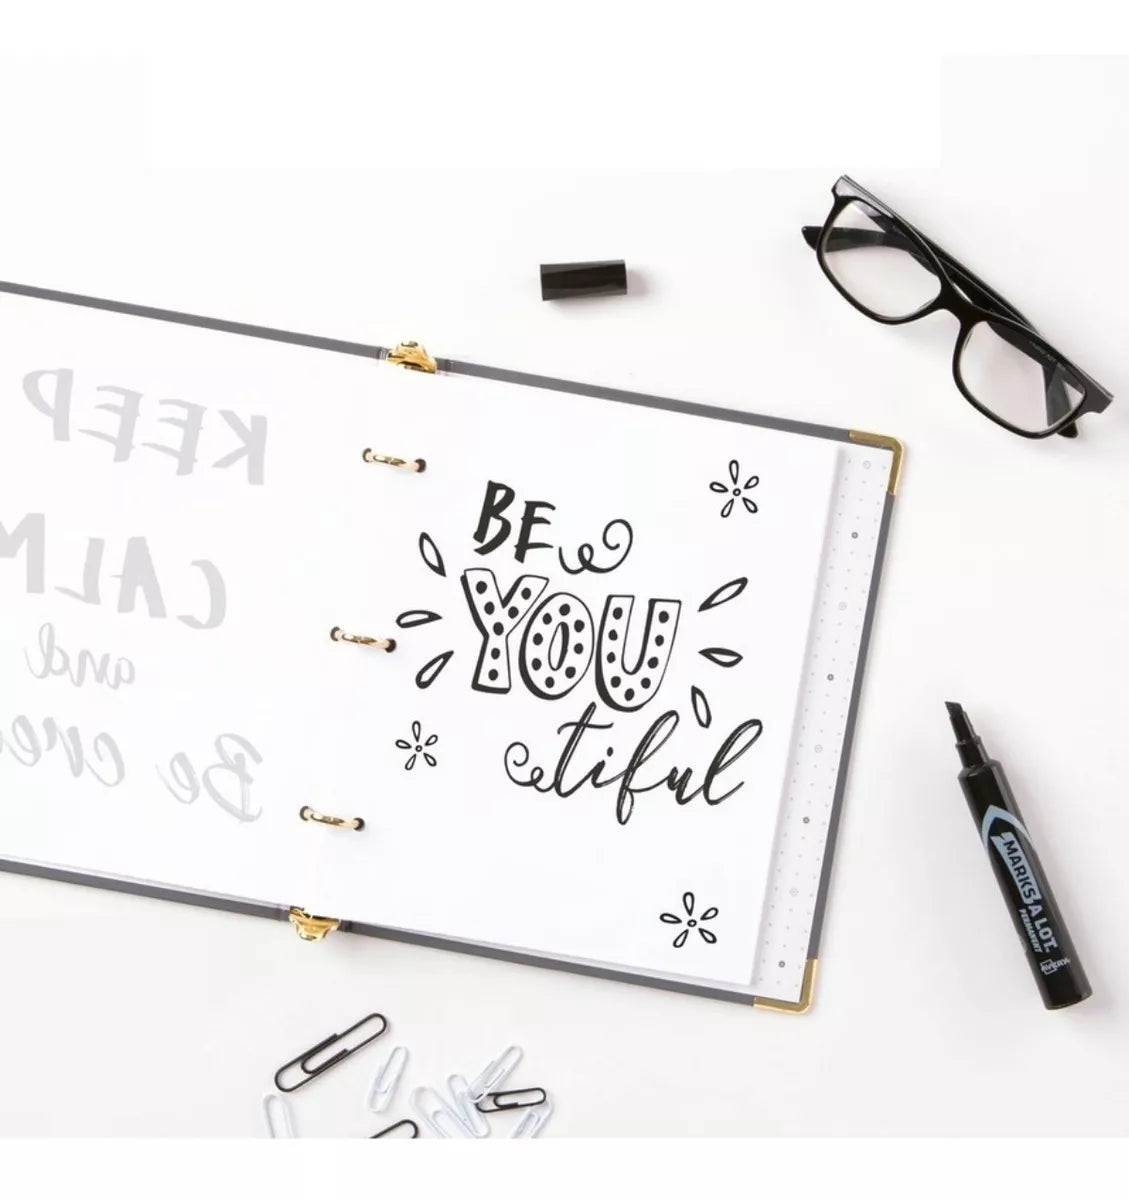 KEEP
CALM
and
Be crea
BE
YOU
tiful
MARKS A LOT.
PERMANENT
AVERY